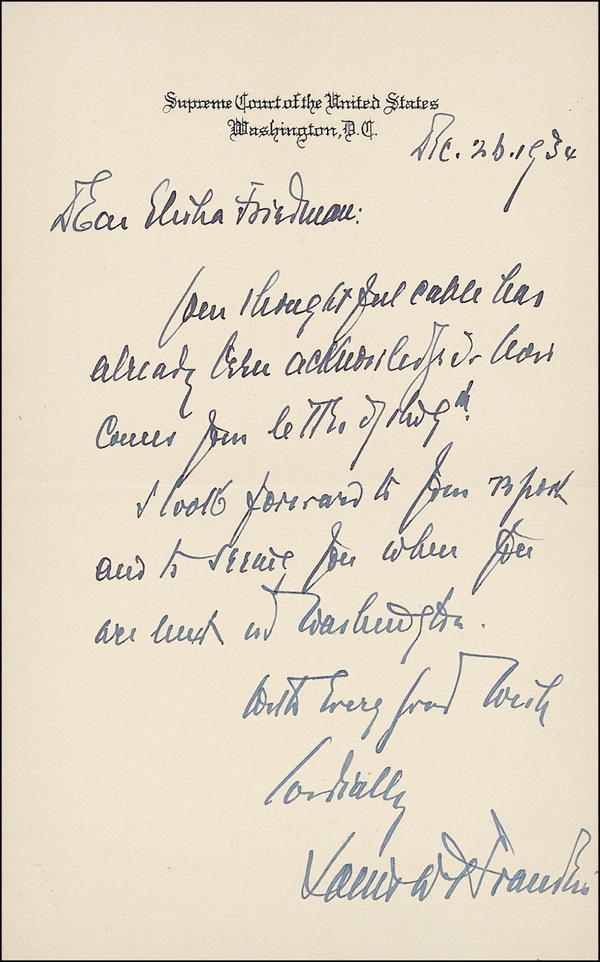 Supreme Court of the United States
Washington, D.C.
Dec. 26. 1934
Dear Elisha Friedman:
Your thoughtful cable has
already been acknowledged. Now
comes your letter of
I look forward to your report
and to seeing you when you
are next in Washington.
With every good wish
Cordially
Louis D. Brandeis